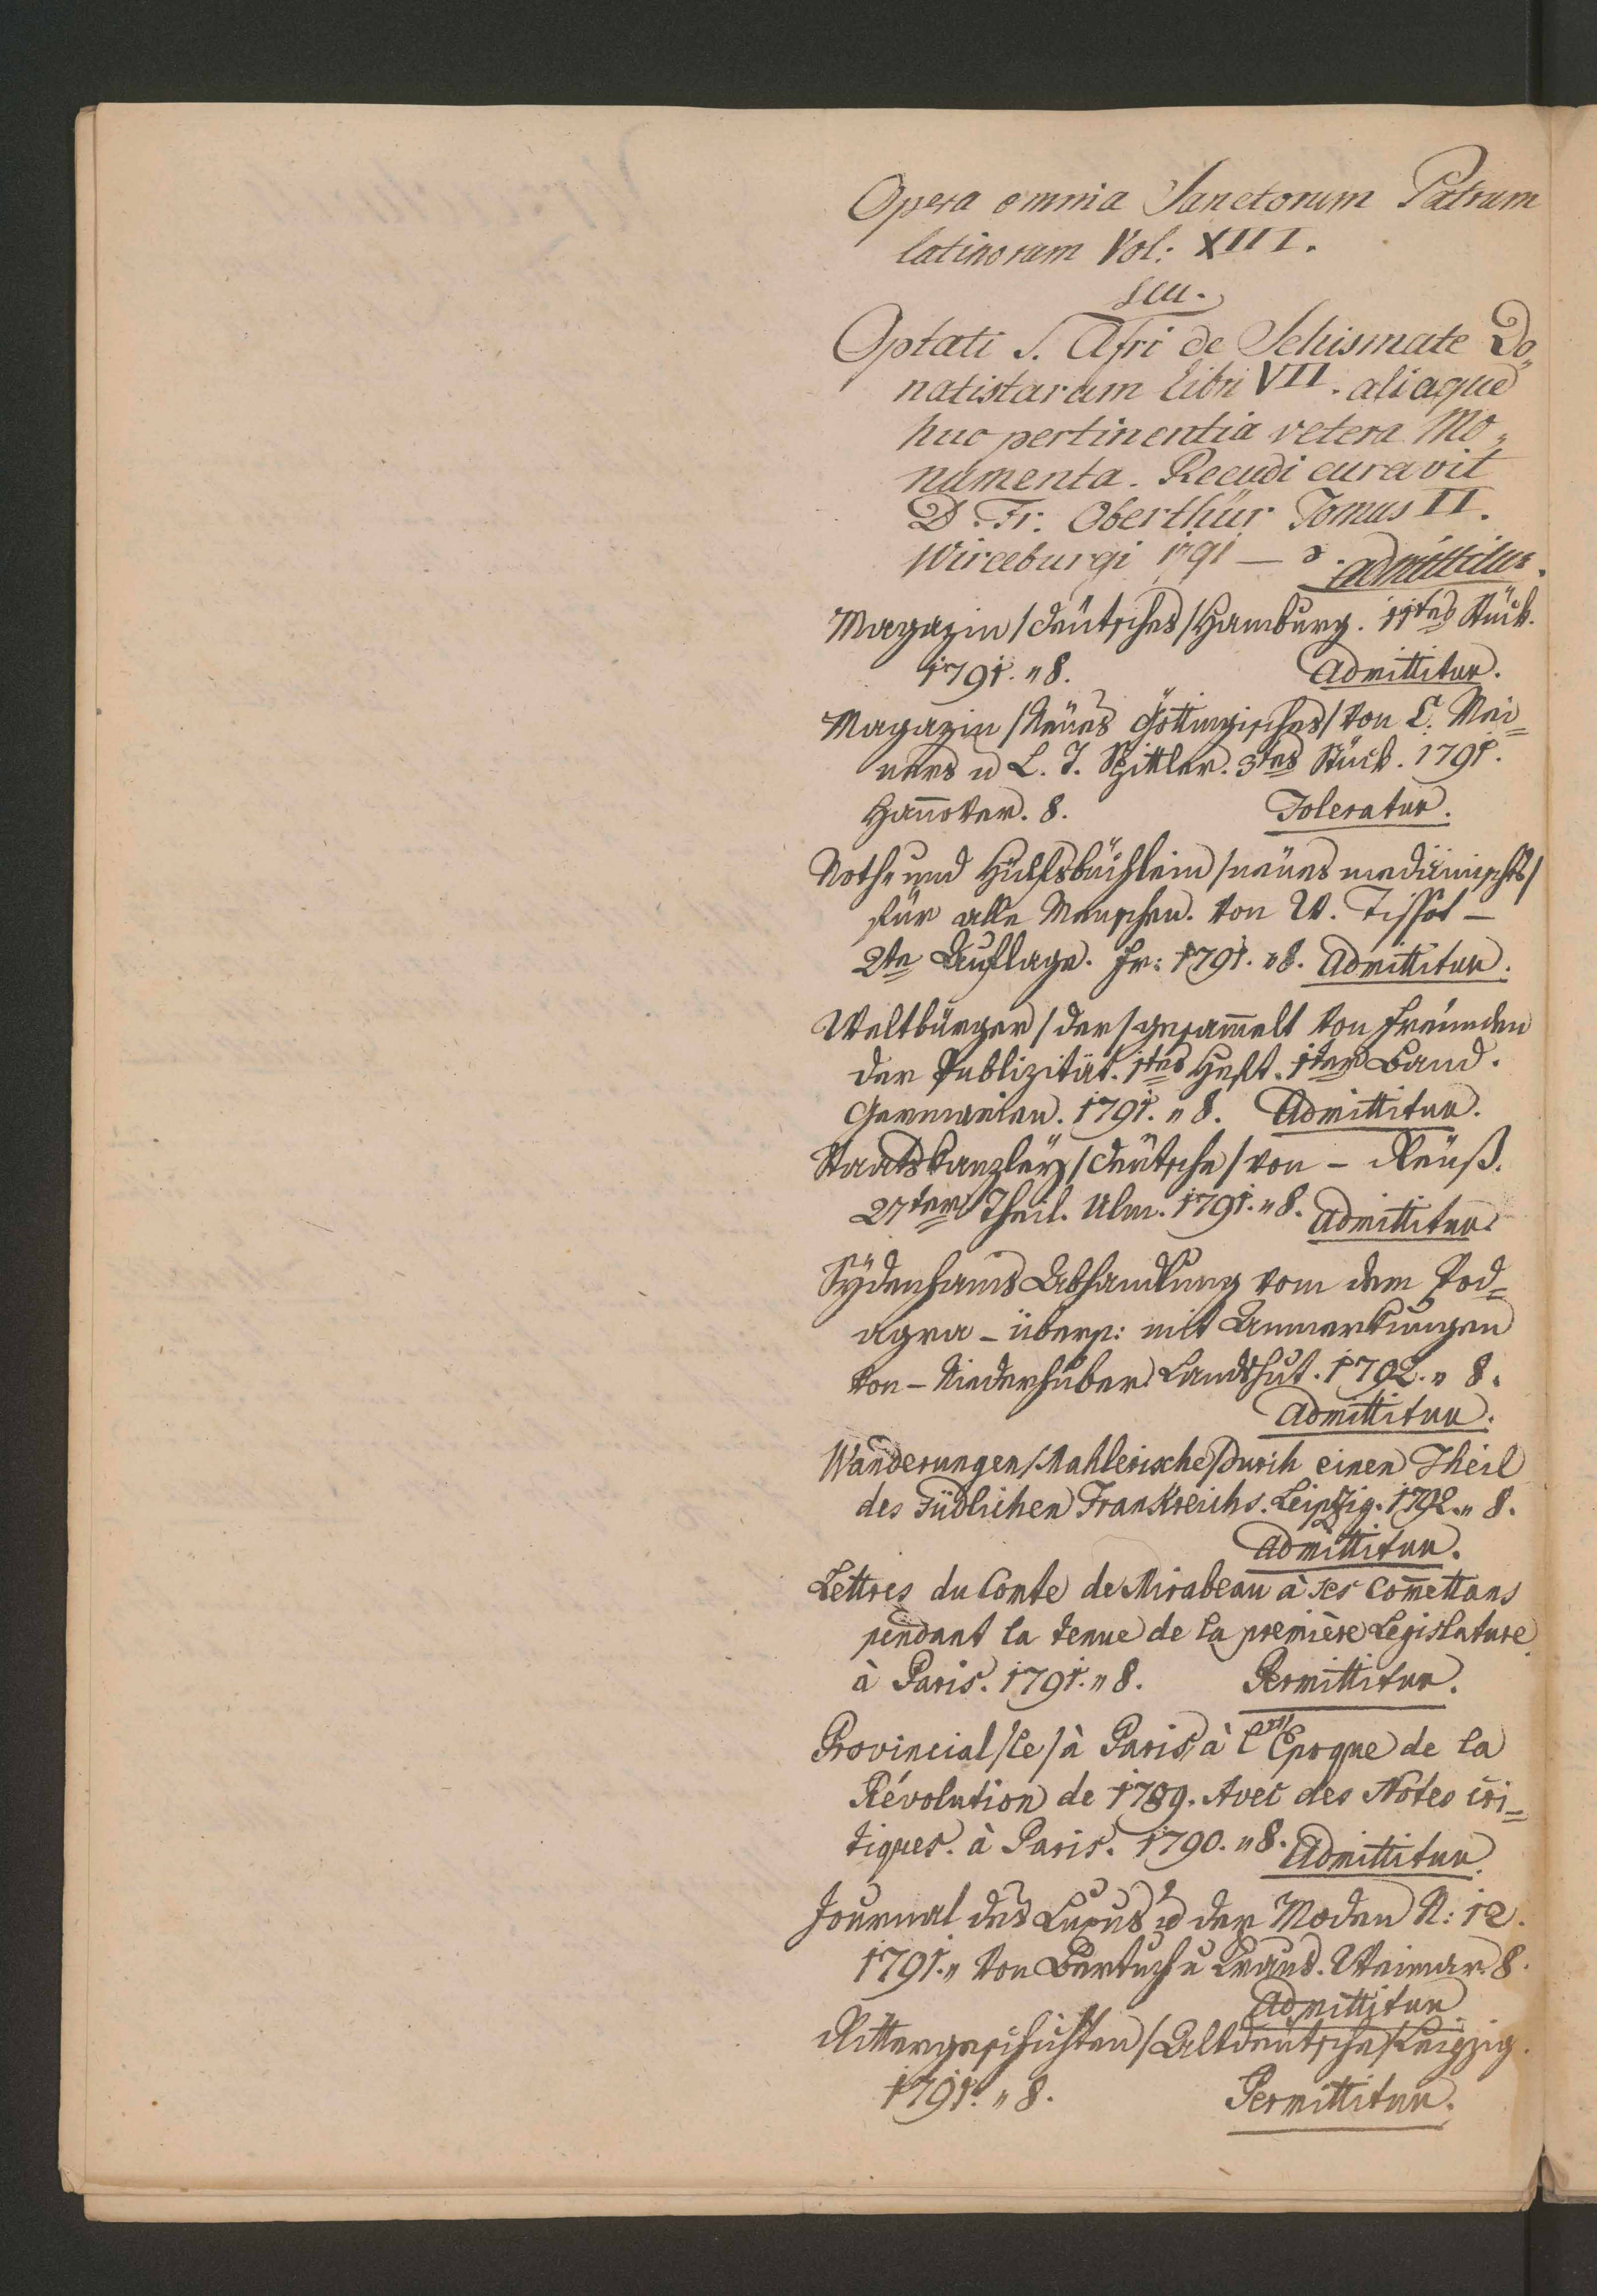 Opera omnia Sanctorum Patrum
latinorum Vol: XIII.
seu.
Optati S. Afri de Schismate Do„
natistarum libri VII. aliaque
huc pertinentia vetera Mo„
numenta. Recudi curavit
D. Fr. Oberthür Tomus II.
Wirceburgi 1791 — 8. admittitur.
Magazin /deütsches/ Hamburg. 11tes Stück.
1791. „ 8. Admittitur.
Magazin /Neües Göttingisches/ von C. Mei=
ners u L. T. Spittler. 3tes Stück. 1791.
Hannover. 8. Toleratur.
Noth- und Hülfsbüchlein /neües medicinisches/
für alle Menschen. von W. Tissot —
2te Auflage. Fr: 1791. „ 8. Admittitur.
Weltbürger /der/ gesammelt von Freünden
der Publizität. 1tes Heft. 1ter Band.
Germanien. 1791. „ 8. Admittitur.
Staatskanzley /deütsche/ von – Reüß.
27ter Theil. Ulm. 1791. „ 8. Admittitur.
Sÿdenhams Abhandlung vom dem Pod=
agra – übers: mit Anmerkungen
von – Niederhuber Landshut. 1792. „ 8.
Admittitur.
Wanderungen /Mahlerische/ durch einen Theil
des Südlichen Frankreichs. Leipzig. 1792. „ 8.
Admittitur.
Lettres du Comte de Mirabeau à ses Comettans
pendant la tenue de la première Legislature
à Paris. 1791. „ 8. Permittitur.
Provincial /le/ à Paris, à l'Epoque de la
Révolution de 1789. Avec des Notes cri=
tiques. à Paris. 1790. „ 8. Admittitur.
Journal des Luxus u der Moden N: 12.
1791. „ von Bertuch u Kraus. Weimar. 8.
Admittitur
Rittergeschichten /Altdeutsche/ Leipzig.
1791. „ 8. Permittitur.